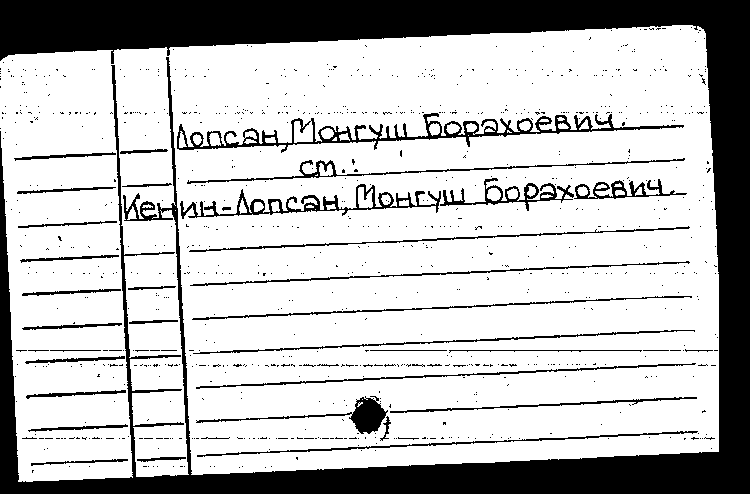 Лопсан, Монгуш Борахоевич.
см.:
Кенин-Лопсан, Монгуш Борахоевич.